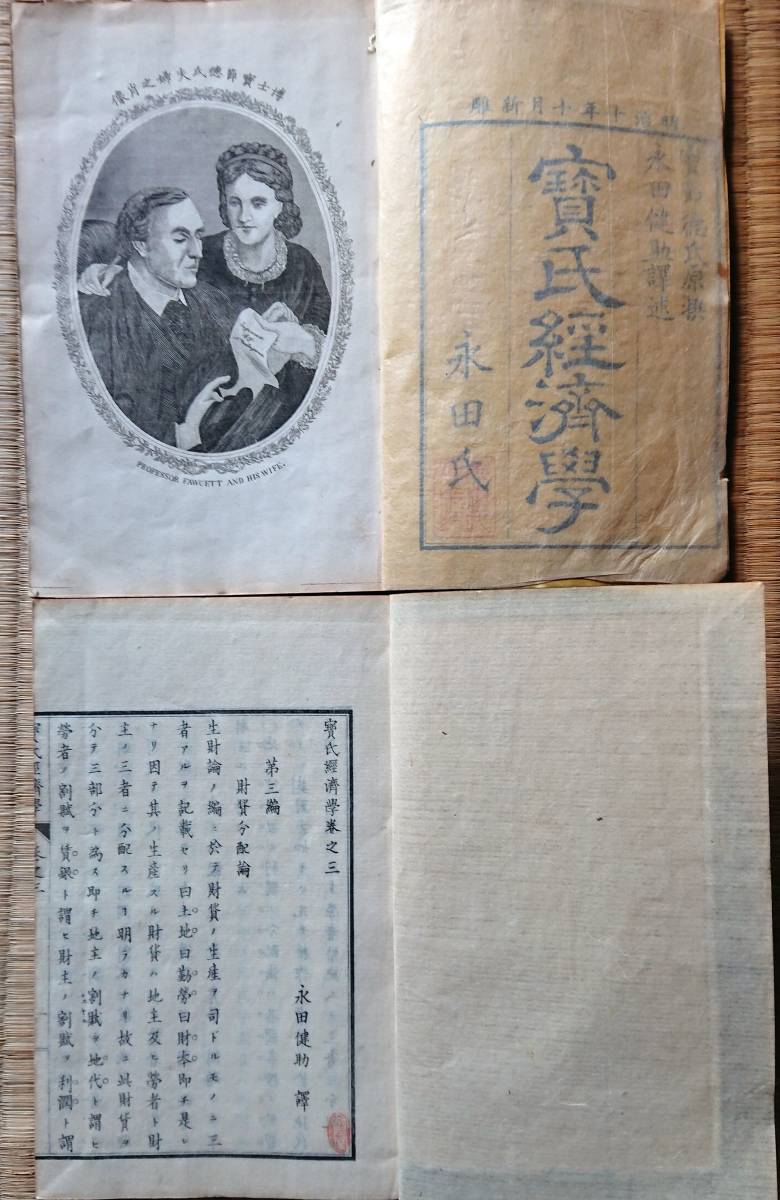 博士寶節德氏夫婦之肖像
PROFESSOR FAWCETT AND HIS WIFE.
明治十年十月新雕
寶節德氏原撰
永田健助譯述
寶氏經濟學
永田氏
寶氏經濟學卷之三
永田健助 譯
第三編
財貨分配論
生財論ノ編ニ於テ財貨ノ生産ヲ司ドルモノニ三
者アルヲ記載セリ曰土地曰勤勞曰財本即チ是レ
ナリ因テ其ノ生産スル財貨ハ地主及ヒ勞者ト財
主ノ三者ニ分配スルヿ明ラカナリ故ニ此財貨ヲ
分テ三部分ト為ス即チ地主ノ割賦ヲ地代ト謂ヒ
勞者ノ割賦ヲ賃銀ト謂ヒ財主ノ割賦ヲ利潤ト謂
寶氏經濟學 卷之三